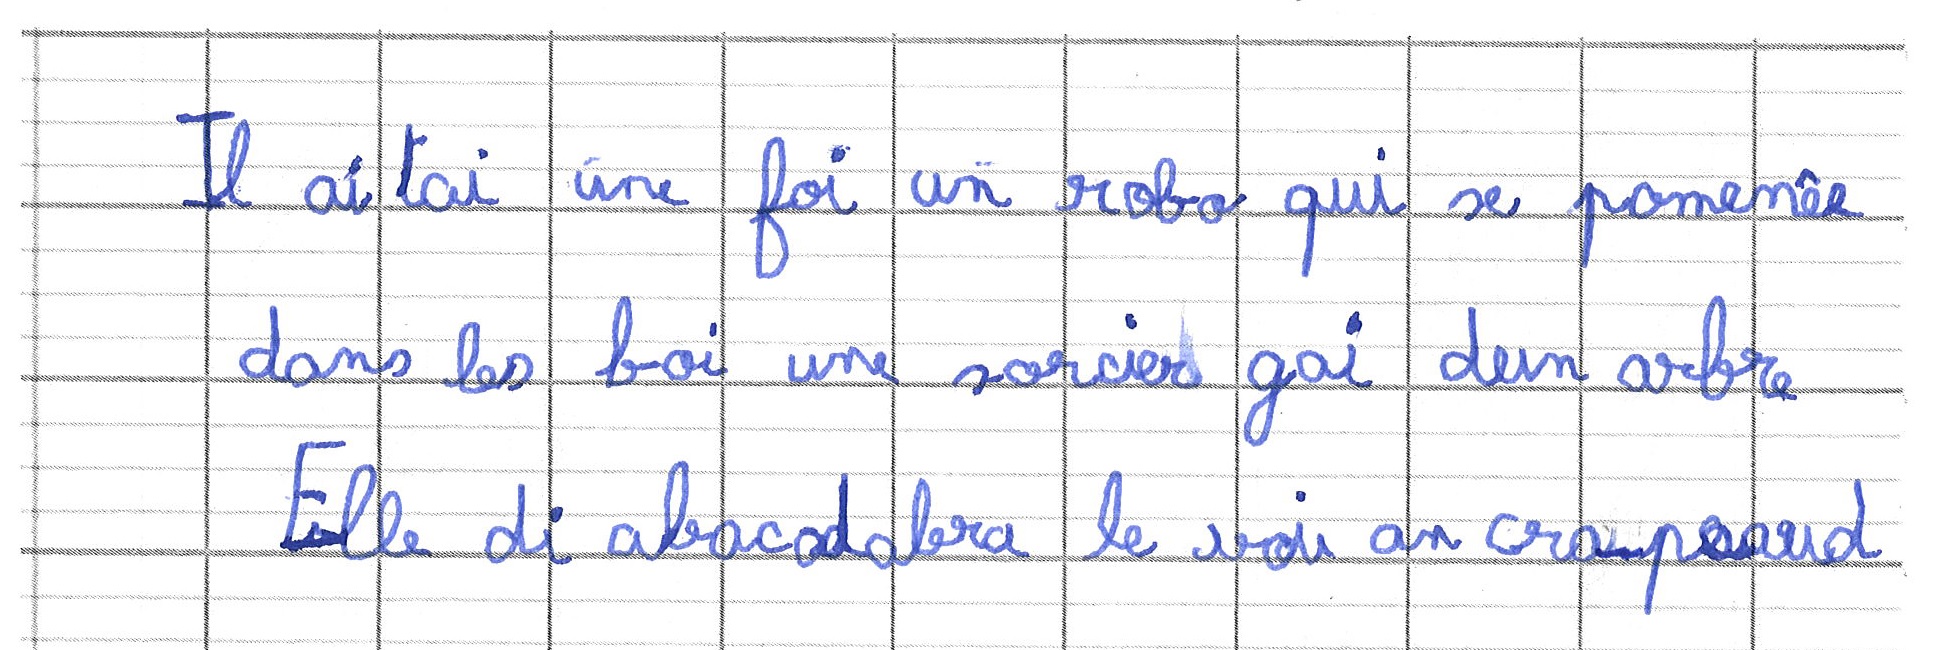 Il aitai une foi un robo qui se pomenêe
dans les boi une sorcier gai deun arbre
Elle di abacadabra le voi an crapaud